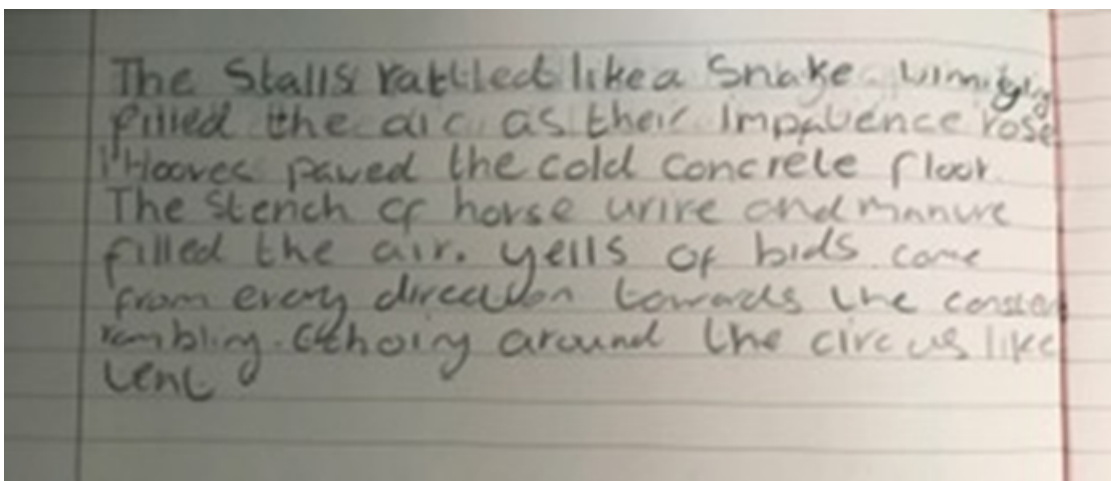 The Stalls rattled like a Snake
filled the air as their Impatience rose
Hooves paved the cold concrete floor.
The Stench of horse urine and manure
filled the air. yells of bids come
from every direction towards the
rambling. around the circus like
tent